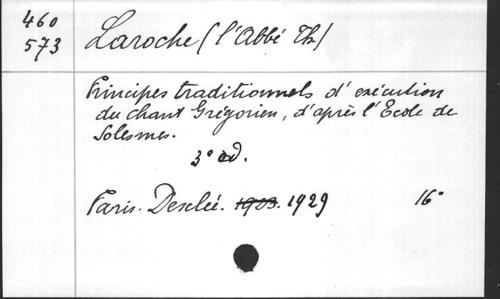 460
573
Laroche (l'Abbé Th)
Principes traditionnels d'exécution
du chant Grégorien, d'après l'Ecole de
Solesmes.
3e ed.
Paris. Desclée. 1903. 1929 16°